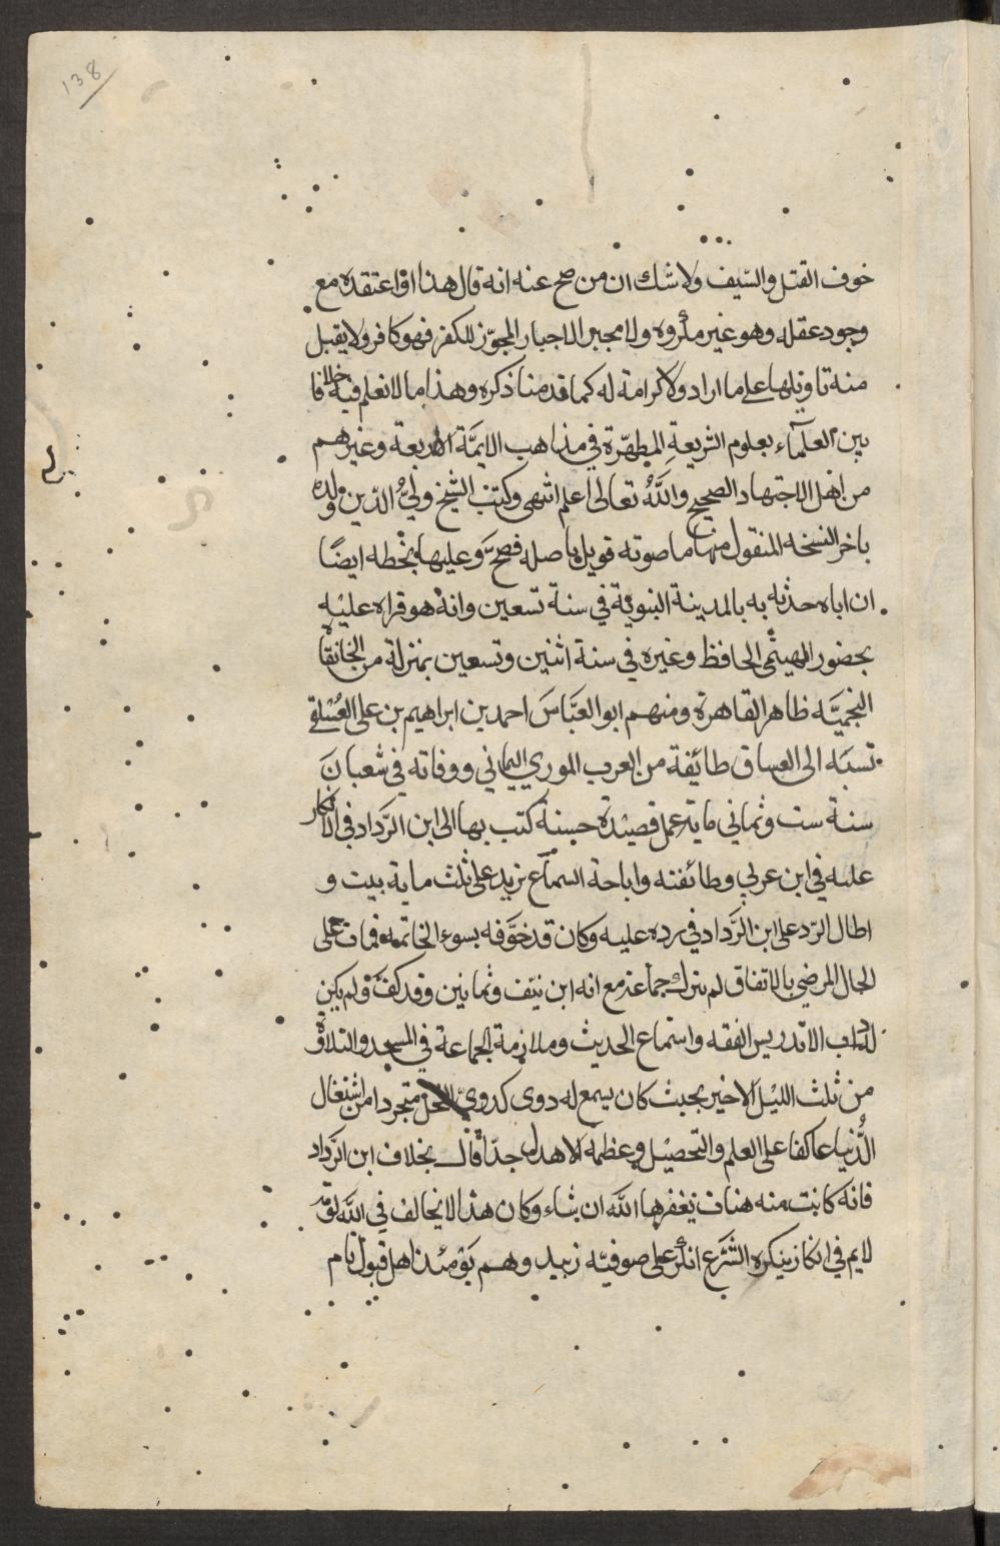 138
خوف القتل والسّيف ولا شك ان من صح عنه انه قال هذا او اعتقده مع
وجود عقله وهو غير مكروه ولا مجبر الاجبار المجوّز للكفر فهو كافر ولا يقبل
منه تاويلها على ما اراد ولا كرامة له كما قدمنا ذكره وهذا ما لا نعلم فيه خلافا
بين العلمآء بعلوم الشريعةِ المطهّرة في مذاهب الايمَّة الاربعة وغيرهم
من اهل الاجتهاد الصحيح واللّهُ تعالى اعلم انتهى وكتب الشيخ وليُّ الدّين ولده
باخر النسخه المنقول منها ما صوته قوبل باصله فصحَّ وعليها بخطه ايضًا
ان اباه حدثه به بالمدينة النبوية في سنة تسعين وانهُ هو قراه عليْهِ
بحضور الهيثمى الحافظ وغيره في سنة اثنين وتسعين بمنزلة من الخانقا
النجميَّه ظاهر القاهرة ومنهم ابو العبَّاسَ احمد بن ابراهيم بن على العُسْلقي
نسبَه الى العساق طائفة من العرب الموري اليماني ووفاته في شعبانَ
سنة ست وثماني ماية عمل قصيْدة حسنة كتب بها الى ابن الرّداد في الانكار
عليه في ابن عربي وطائفته واباحة السماع تزيد على ثلث ماية بيت و
اطال الرّد على ابن الرَّداد في رده عليه وكان قد خوَّفه بسوء الخاتمه فمات على
الحال المرضي بالاتفاق لم يترك جماعة مع انه ابن نيّف وثمانين وقد كفَّ ولم يكن
له داب الا تدريس الفقه واستماع الحديث وملازمة الجماعة في المسجد والتلاوة
من ثلث الليْل الاخير بحيث كان يسمع له دوى كدوي النحل متجردا من اشتغال
الدُّنيا عاكفا على العلم والتحصيْل وعظمه الاهدل جدّا قال بخلاف ابن الرّداد
فانه كانت منه هنات يغفرها اللّه ان شاء وكان هذا لا يخالف في اللّه لومة
لايم في انكار ينكره الشَّرع انكر على صوفيّه زبيد وهم يَوْمئذ اهل قبول تام